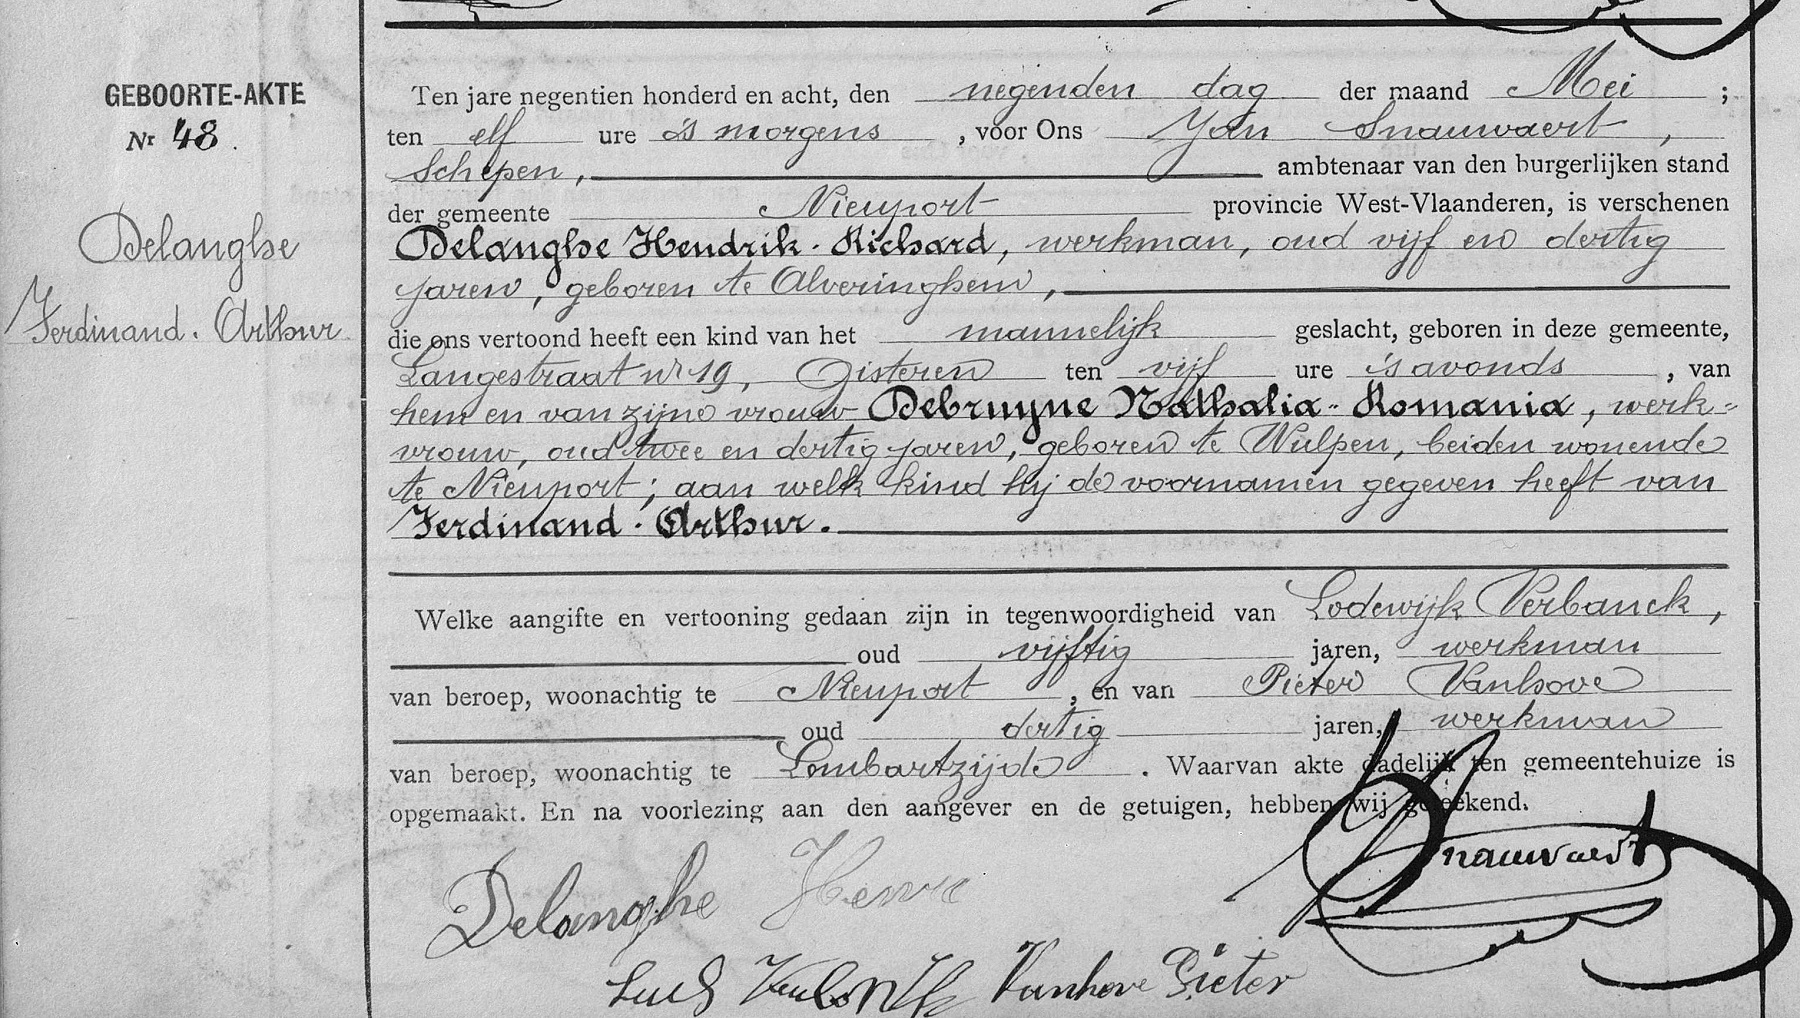 GEBOORTE-AKTE
Nr 48.
Delanghe
Ferdinand. Arthur.
Ten jare negentien honderd en acht, den negenden dag der maand Mei ;
ten elf ure 's morgens , voor Ons Jan Snauwaert ,
Schepen, ambtenaar van den burgerlijken stand
der gemeente Nieuport provincie West-Vlaanderen, is verschenen
Delanghe Hendrik-Richard, werkman, oud vijf en dertig
jaren, geboren te Alveringhem,
die ons vertoond heeft een kind van het mannelijk geslacht, geboren in deze gemeente,
Langestraat nr 19, Gisteren ten vijf ure 's avonds , van
hem en van zijne vrouw Debruyne Nathalia-Romania, werk-
vrouw, oud twee en dertig jaren, geboren te Wulpen, beiden wonende
te Nieuport; aan welk kind hij de voornamen gegeven heeft van
Ferdinand. Arthur.
Welke aangifte en vertooning gedaan zijn in tegenwoordigheid van Lodewijk Verbanck,
oud vijftig jaren, werkman
van beroep, woonachtig te Nieuport , en van Pieter Vanhove
oud dertig jaren, werkman
van beroep, woonachtig te Lombartzijde . Waarvan akte dadelijk ten gemeentehuize is
opgemaakt. En na voorlezing aan den aangever en de getuigen, hebben wij geteekend.
Snauwaert
Delanghe Henri
Vanhove Pieter